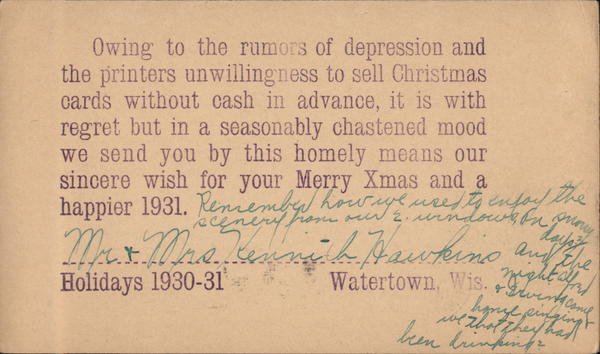 Owing to the rumors of depression and
the printers unwillingness to sell Christmas
cards without cash in advance, it is with
regret but in a seasonably chastened mood
we send you by this homely means our
sincere wish for your Merry Xmas and a
happier 1931. Remember how we used to enjoy the
scenery from our 2. windows on snowy
days?
Mr & Mrs Kennith Hawkins And the
night
Holidays 1930-31 Watertown, Wis.
& Irving came
home singing &
we that they had
been drinking?